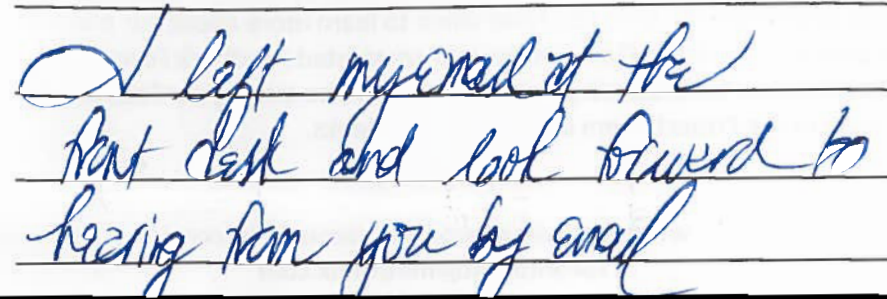 I left my email at the
front desk and look forward to
hearing from you by email